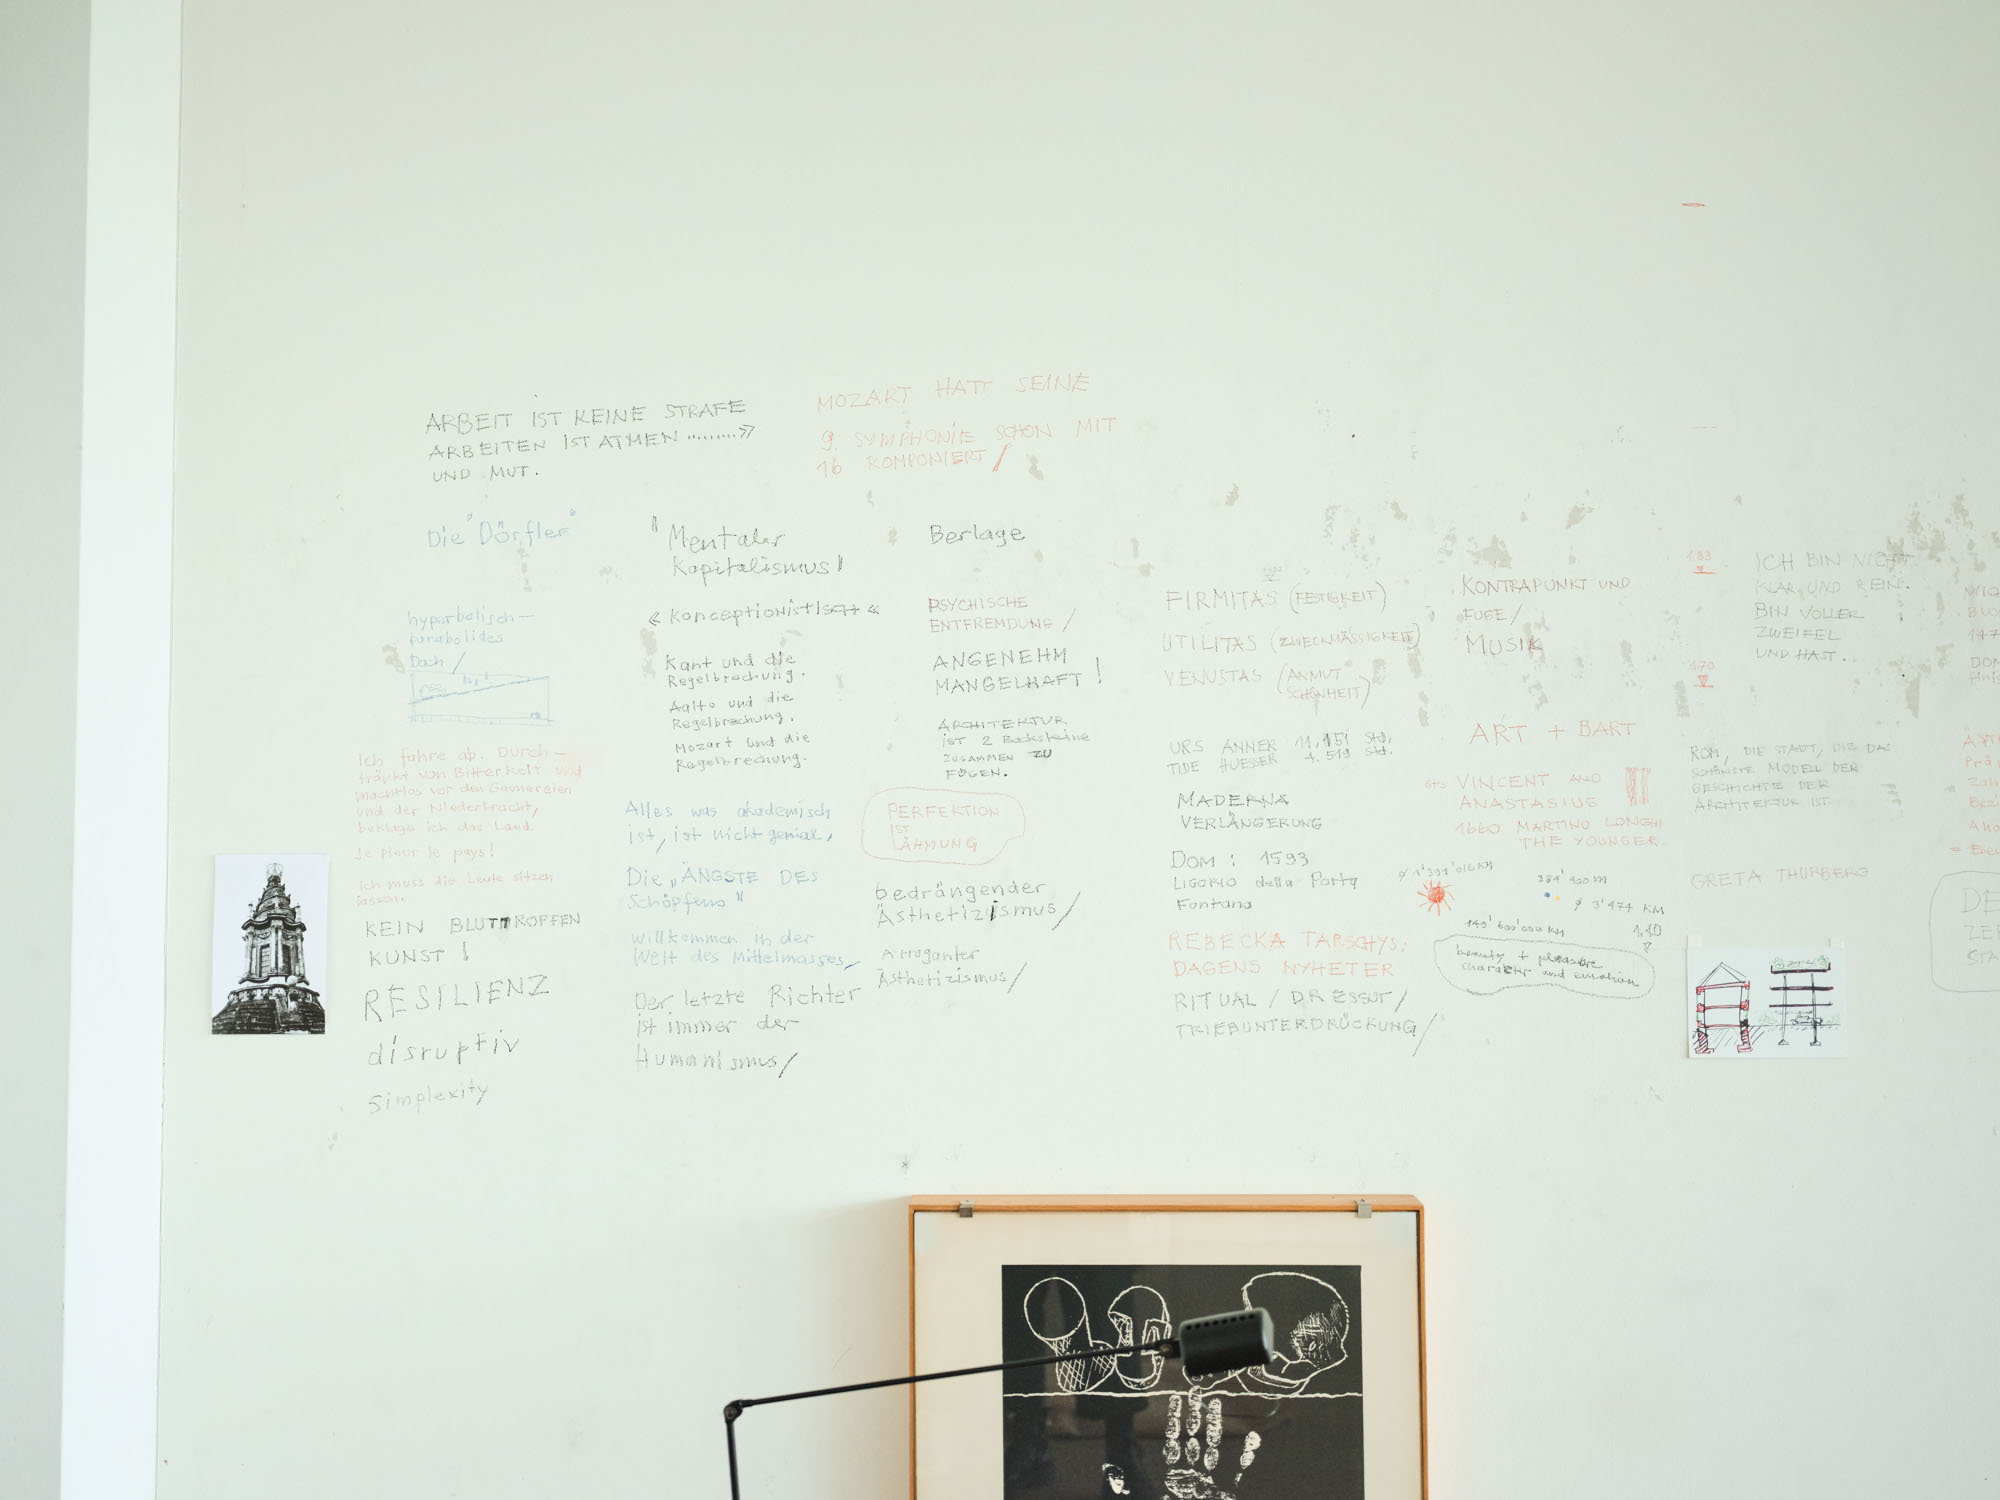 ARBEIT IST KEINE STRAFE
ARBEITEN IST ATMEN ........»
UND MUT.
MOZART HATT SEINE
9. SYMPHONIE SCHON MIT
16 KOMPONIERT/
Die "Dörfler"
hyperbolisch-
parabolides
Dach /
Ich fahre ab. Durch-
tränkt von Bitterkeit und
machtlos vor den Gaunereien
und der Niedertracht,
beklage ich das Land.
Je pleur le pays!
Ich muss die Leute sitzen
lassen.
KEIN BLUTTROPFEN
KUNST !
RESILIENZ
disruptiv
Simplexity
"Mentaler
Kapitalismus"
Kant und die
Regelbrechung.
Aalto und die
Regelbrechung.
Mozart und die
Regelbrechung.
Alles was akademisch
ist, ist nicht genial,
Die „ÄNGSTE DES
Schöpfens"
willkommen in der
Welt des Mittelmasses,
Der letzte Richter
ist immer der
Humanismus/
Berlage
PSYCHISCHE
ENTFREMDUNG /
ANGENEHM
MANGELHAFT !
ARCHITEKTUR
IST 2 Backsteine
ZUSAMMEN ZU
FÜGEN.
PERFEKTION
IST
LÄHMUNG
bedrängender
Ästhetizismus/
Arroganter
Ästhetizismus/
FIRMITAS (FESTIGKEIT)
UTILITAS (ZWECKMÄSSIGKEIT)
VENUSTAS (ANMUT
SCHÖNHEIT)
URS ANNER 11,151 Std.
TIDE HUESSER 4.519 Std.
MADERNA
VERLÄNGERUNG
DOM : 1593
LIGORIO della Porta
Fontana
REBECKA TARSCHYS:
DAGENS NYHETER
RITUAL / DRESSUR/
TRIEBUNTERDRÜCKUNG/
KONTRAPUNKT UND
FUGE/
MUSIK
ART + BART
STS VINCENT AND
ANASTASIUS
1660 MARTINO LONGHI
THE YOUNGER.
Ø 1'391'016 KM
384'400 KM
Ø 3'474 KM
149'600'000 KM
1,40
beauty + pleasure
character and emotion
1.83
1.70
ICH BIN NICHT
KLAR UND REIN.
BIN VOLLER
ZWEIFEL
UND HAST.
ROM, DIE STADT, DIE DAS
SCHÖNSTE MODELL DER
GESCHICHTE DER
ARCHITEKTUR IST.
GRETA THURBERG